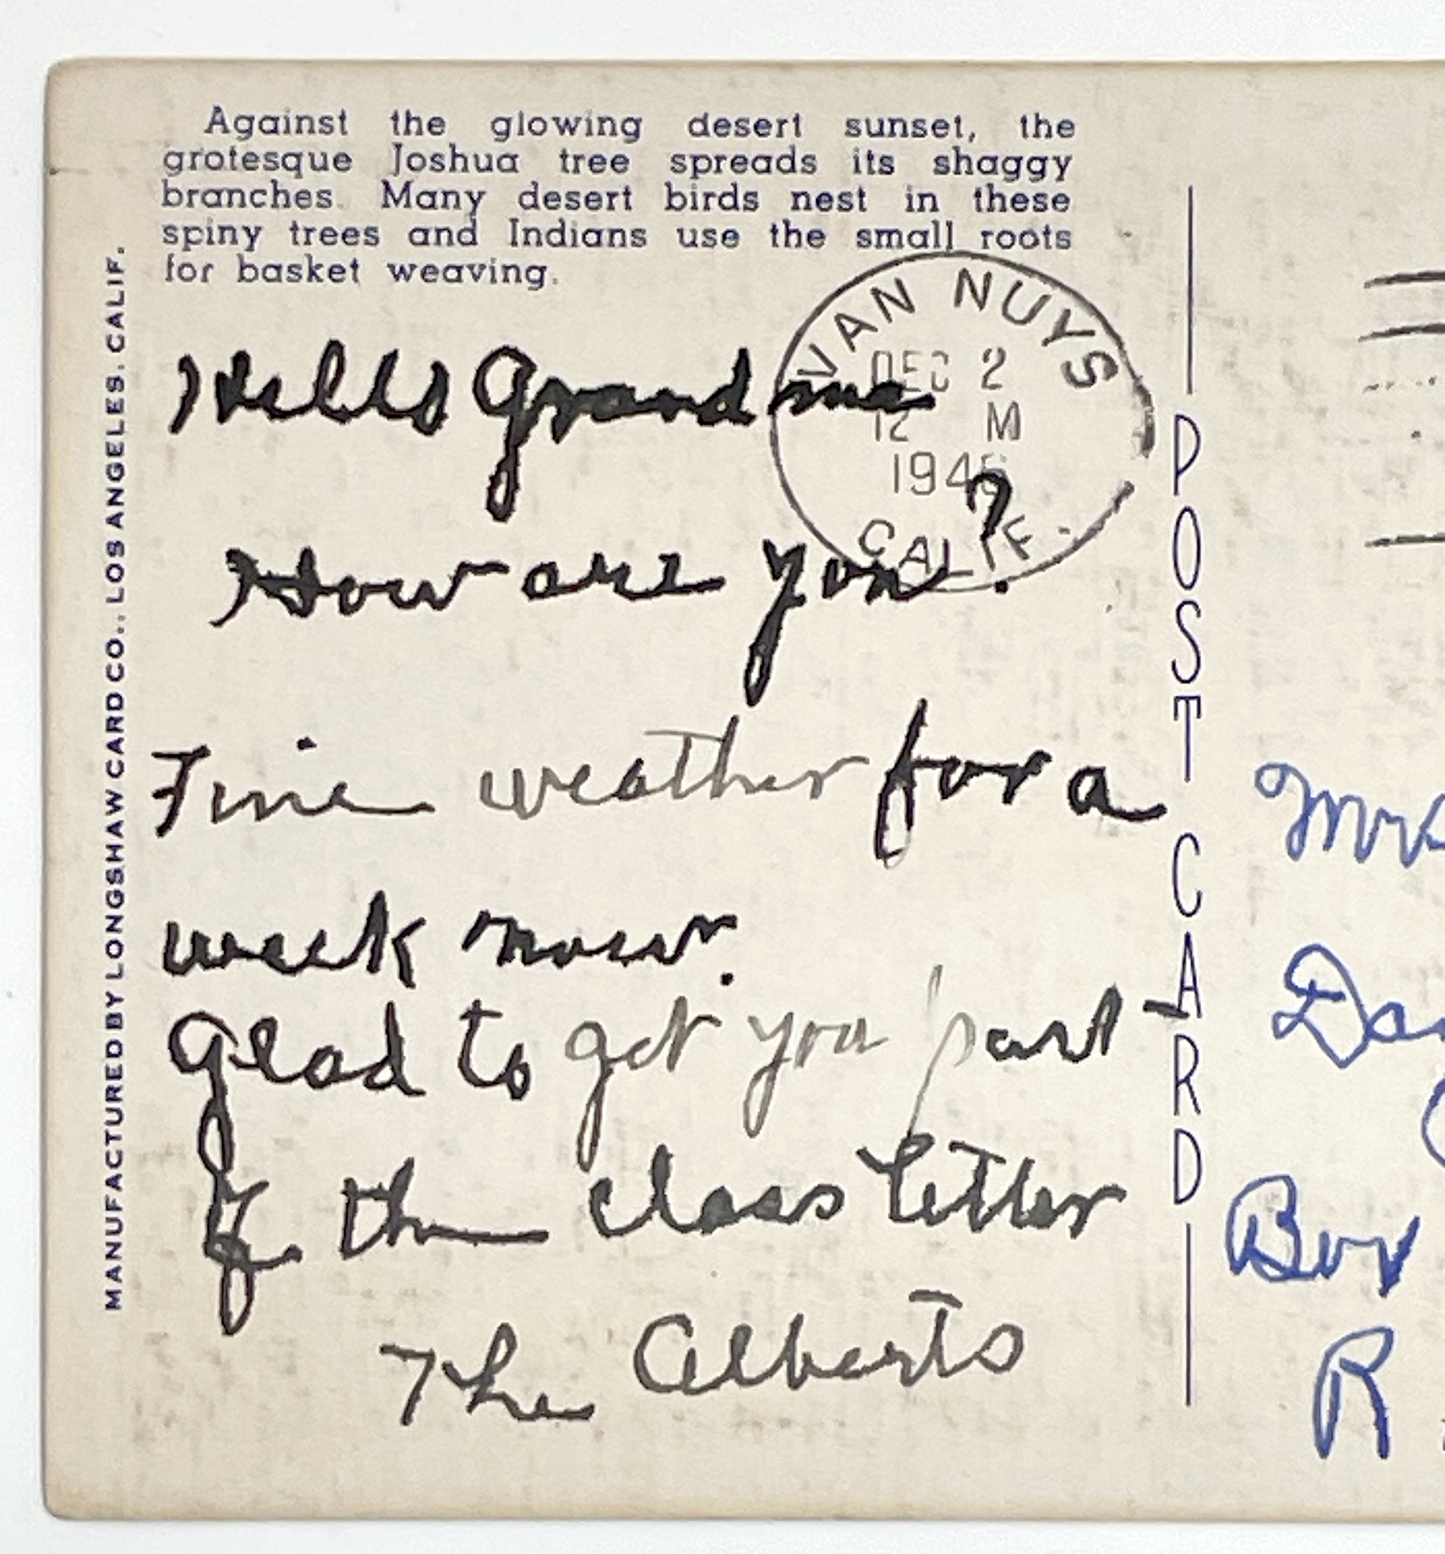 Against the glowing desert sunset, the
grotesque Joshua tree spreads its shaggy
branches. Many desert birds nest in these
spiny trees and Indians use the small roots
for basket weaving.
MANUFACTURED BY LONGSHAW CARD CO., LOS ANGELES, CALIF.
VAN NUYS
DEC 2
12 M
CALIF.
Hello Grandma
How are you?
Fine weather for a
week now.
Glad to get you part
of the class letter
The Alberts
POST CARD
Mrs
Box
R